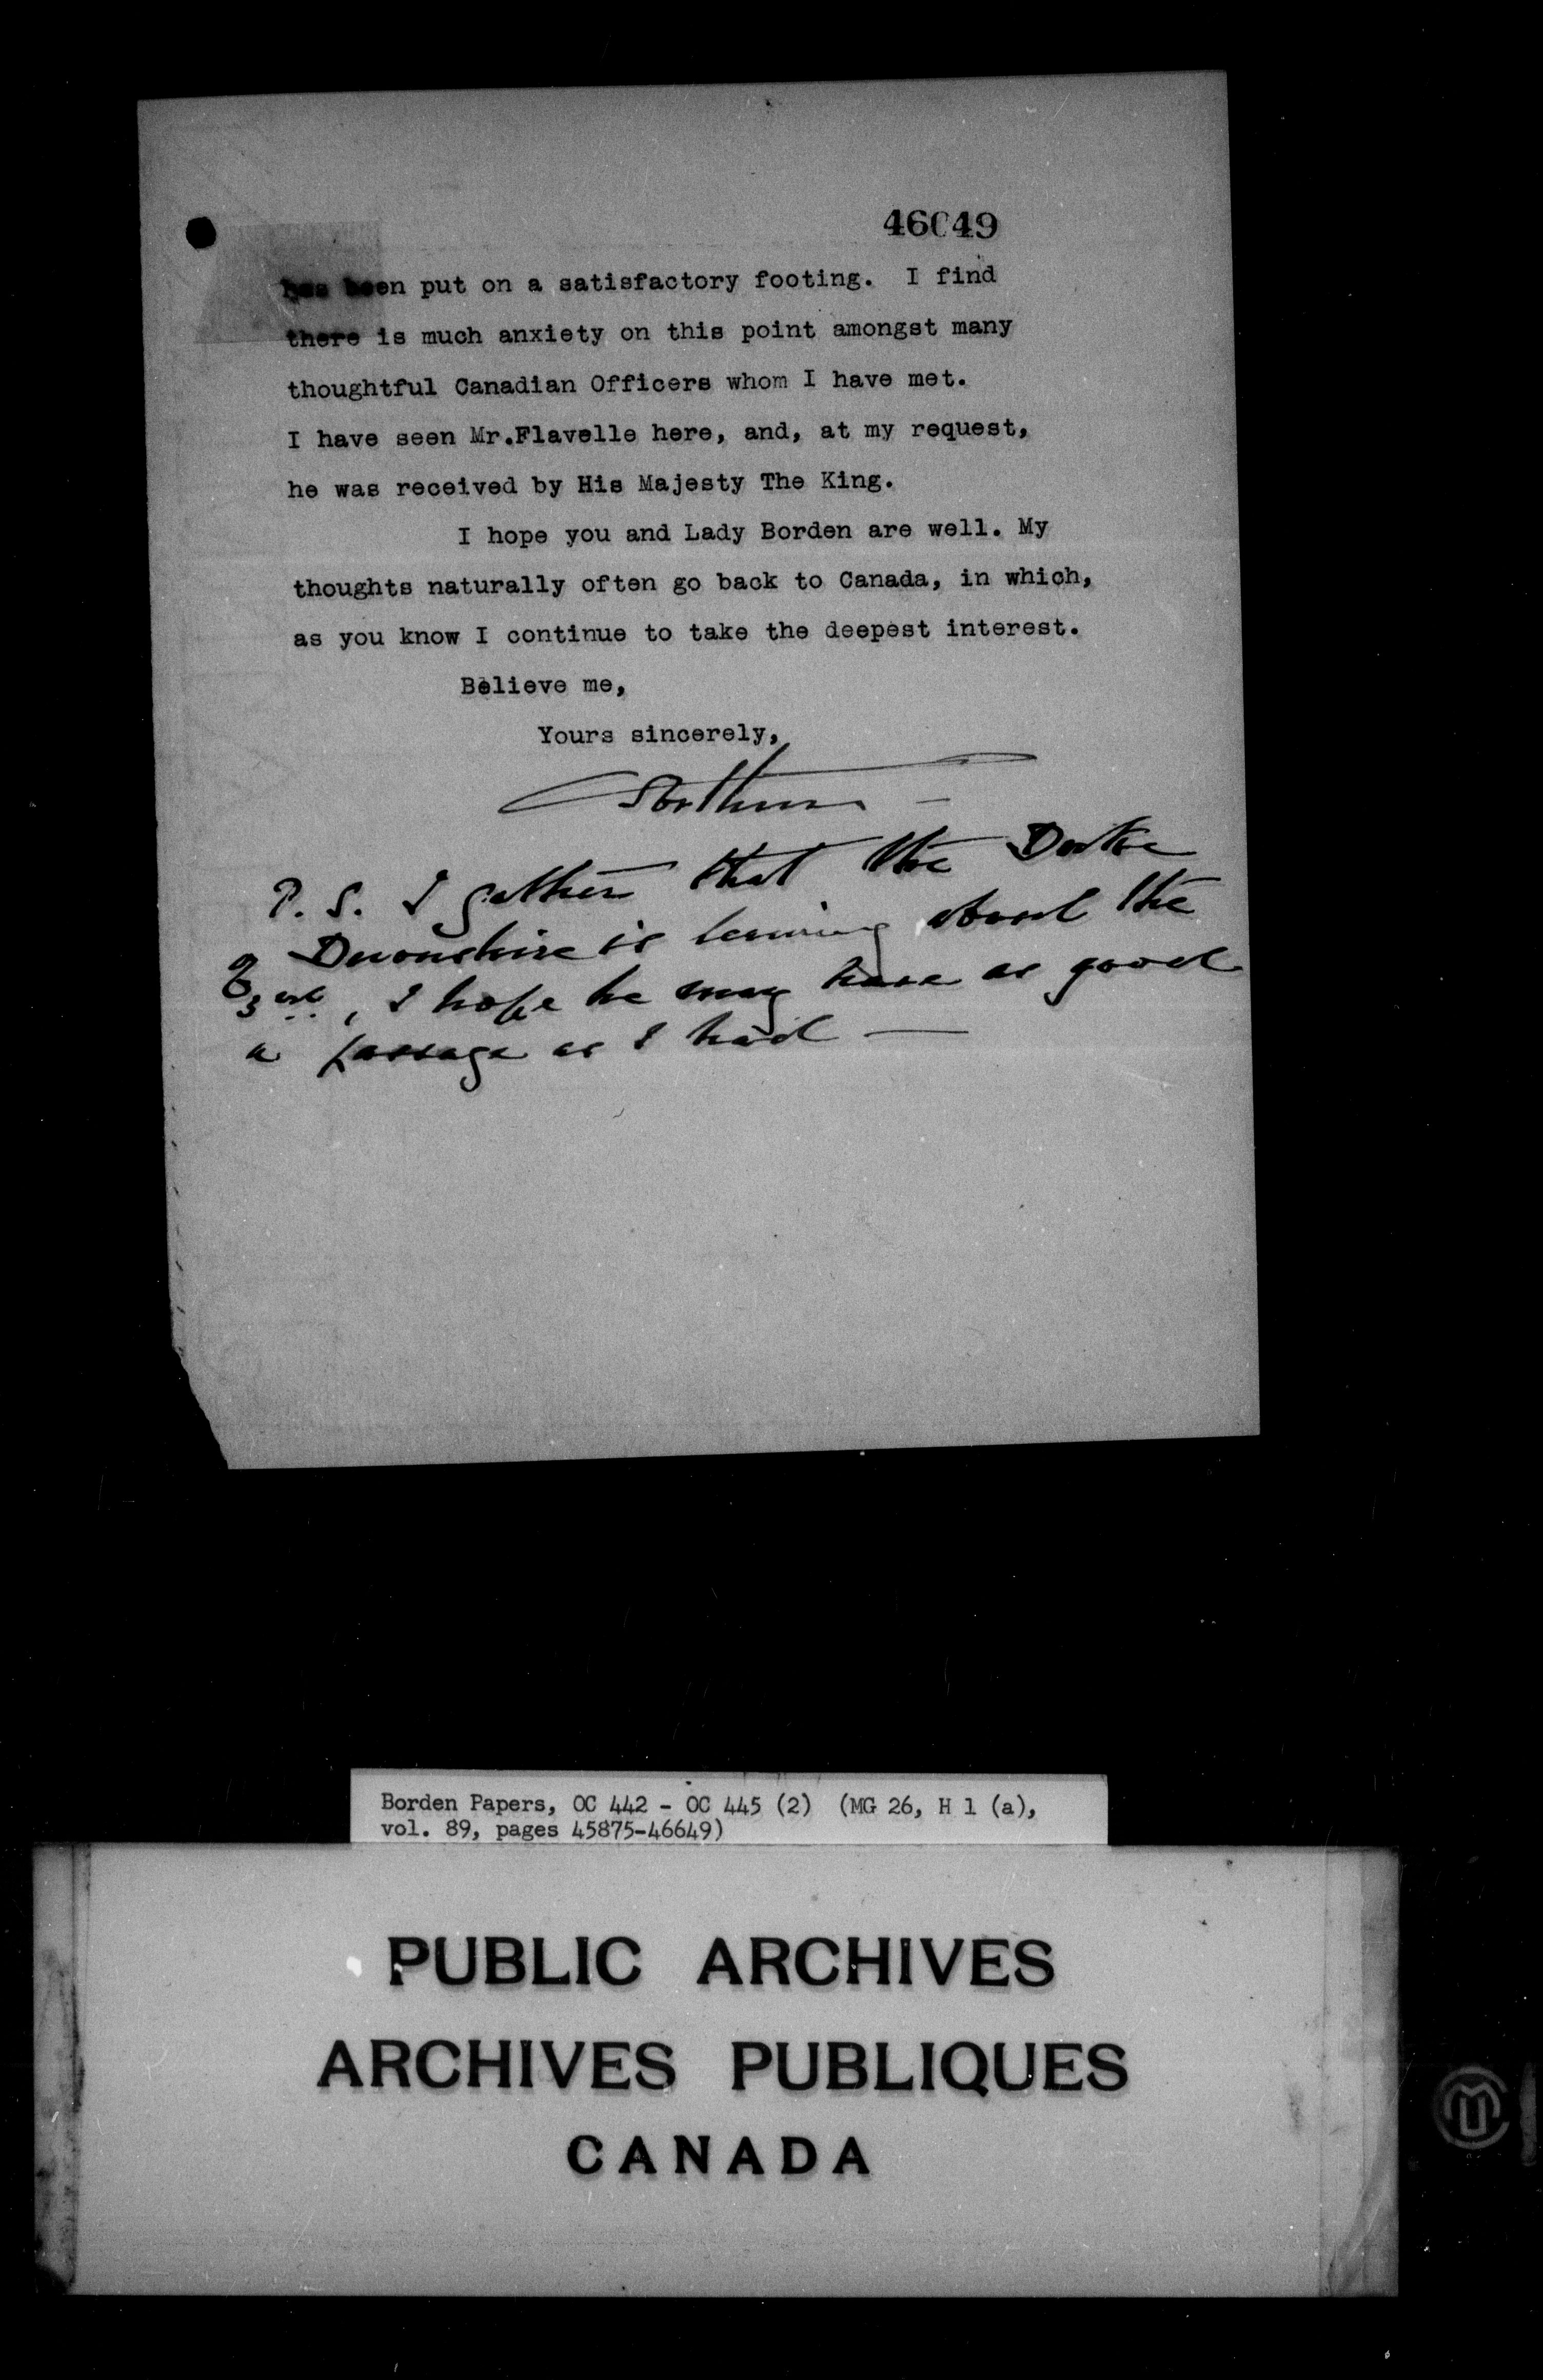 46049
has been put on a satisfactory footing. I find
there is much anxiety on this point amongst many
thoughtful Canadian Officers whom I have met.
I have seen Mr.Flavelle here, and, at my request,
he was received by His Majesty The King.
I hope you and Lady Borden are well. My
thoughts naturally often go back to Canada, in which,
as you know I continue to take the deepest interest.
Believe me,
Yours sincerely,
Arthur
P.S. I gather that the Duke
of Devonshire is leaving about the
3rd, I hope he may have as good
a passage as I had —
Borden Papers, OC 442 - OC 445 (2) (MG 26, H 1 (a),
vol. 89, pages 45875-46649)
PUBLIC ARCHIVES
ARCHIVES PUBLIQUES
CANADA